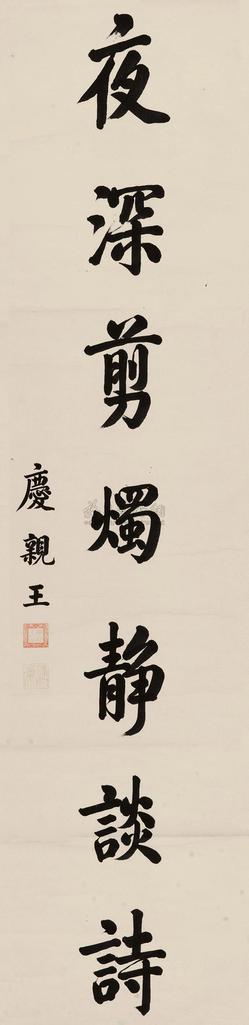 夜深剪燭静談詩
慶親王